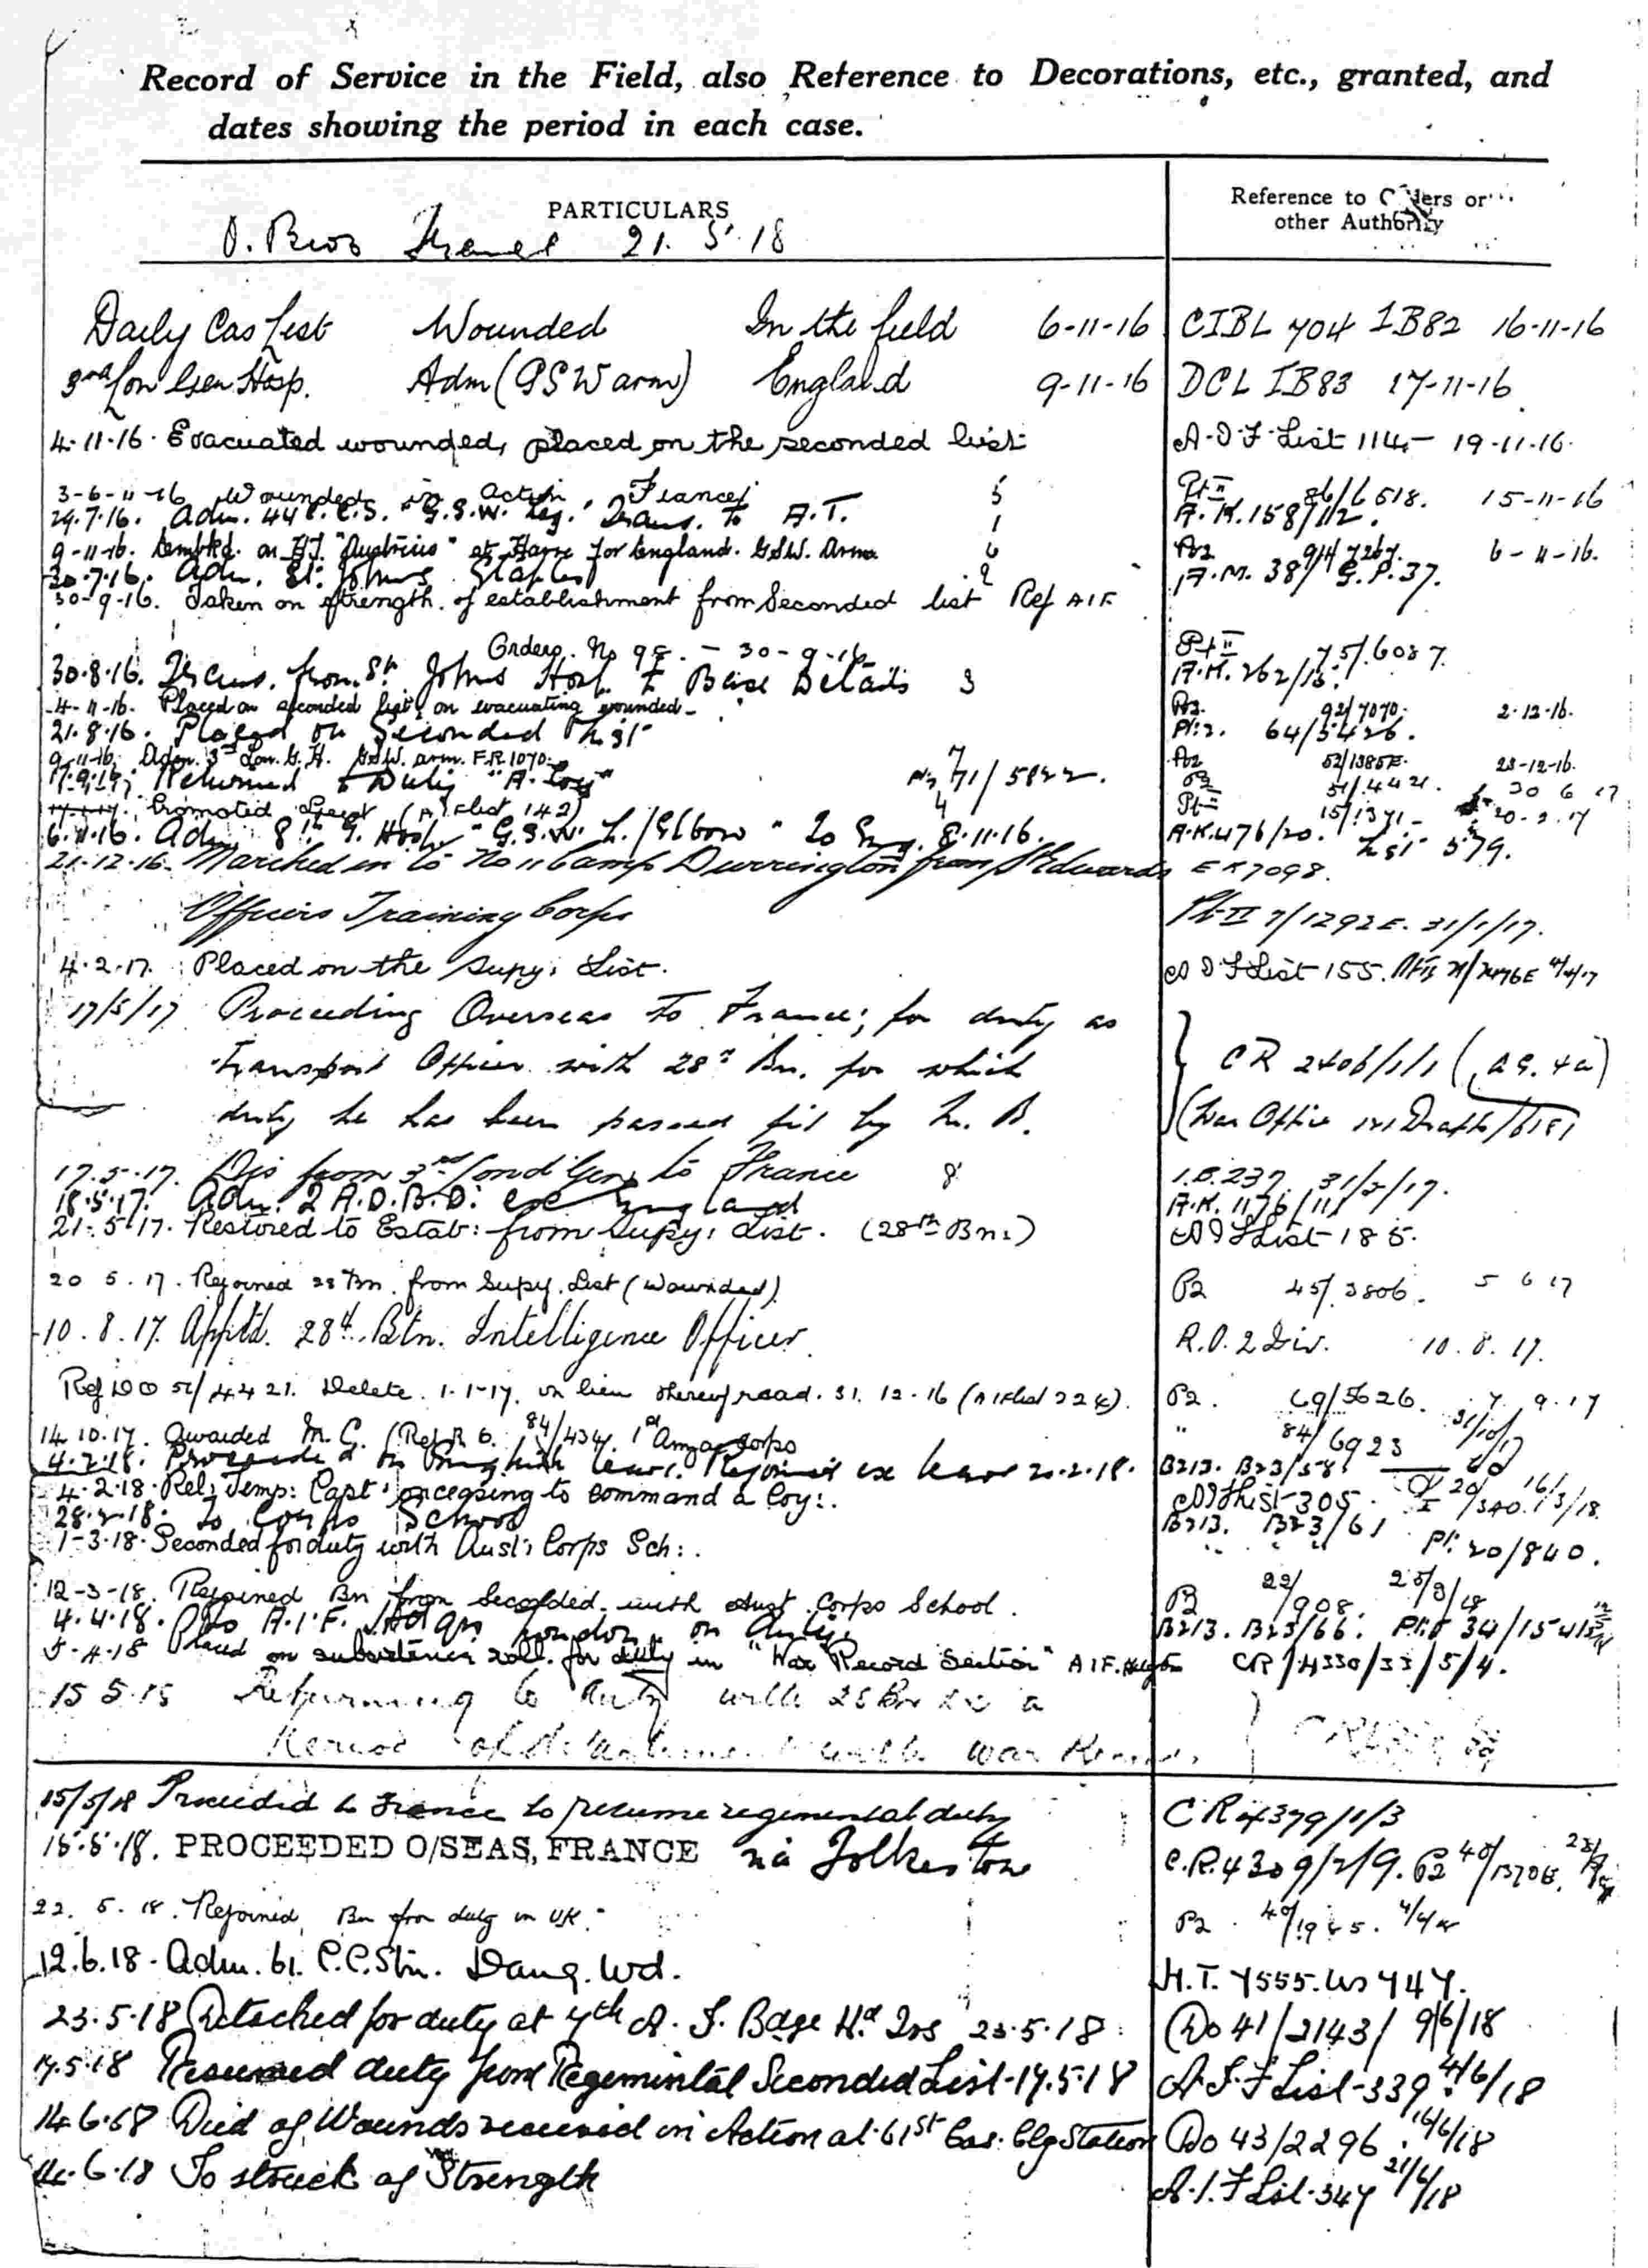 Record of Service in the Field, also Reference to Decorations, etc., granted, and
dates showing the period in each case.
PARTICULARS
Reference to Orders or
other Authority
21. 5. 18
Daily Cas List Wounded In the field 6-11-16 CIBL 704 IB82 16-11-16
3rd Lon Gen Hosp. Adm (GSW arm) England 9-11-16 DCL IB83 17-11-16
4-11-16. Evacuated wounded, placed on the seconded list A.I.F. List 114 - 19-11-16.
3-6-11-16 Wounded in action France 5 Pt II 86/6518. 15-11-16
29.7.16. Adm. 44 C.C.S. "G.S.W. Leg." Trans. to A.T. 1 A.K.158/112.
9-11-16. Embkd. on H.S. "Asturias" at Havre for England. GSW. Arm 6 6-11-16.
30.7.16. Adm. St. Johns Etaples 2 A.M. 38/ G.P.37.
30-9-16. Taken on strength of establishment from Seconded list Ref AIF
Orders. No 98. - 30-9-16 Pt II 75/6087.
30.8.16. Trans. from St Johns Hosp. to Base Details 3 A.K. 262/15.
4-11-16. Placed on seconded list, on evacuating wounded - 92/7070. 2-12-16.
21.8.16. Placed on Seconded List Pt.2. 64/5426.
9-11-16. Adm. 3rd Lon. G.H. GSW. arm. F.R.1070. 52/1385E. 23-12-16.
17.9.16. Returned to Duty "A. Coy" 71/5822. 51/4421. 30 6 17
Promoted (AIF List 142) 4 Pt II 15/1371 - 20-2-17
6.11.16. Adm. 8th G. Hosp. "G.S.W. L. Elbow" To Eng. 8.11.16. A.K.476/20. List 579.
21-12-16. Marched in to No 11 Camp Durrington from St Edwards EK7098.
Officers Training Corps Pt II 7/1292E. 31/1/17.
4.2.17. Placed on the Supy. List. AIF List 155.
17/5/17 Proceeding Overseas to France; for duty as
Transport Officer with 28th Bn. for which CR 2406/1/1 (AG. 4a)
duty he has been passed fit by M. B. (War Office Draft
17.5.17. Dis from 3rd Lond Gen to France 8 I.B.237. 31/5/17.
18.5.17. Adm. 2 A.D.B.D. ex England A.K. 1176/11
21.5.17. Restored to Estab: from Supy: List. (28th Bn.) AIF List 185.
20 5. 17. Rejoined 28 Bn. from Supy. List (Wounded) P2 45/3806. 5 6 17
10. 8. 17. Apptd. 28th Btn. Intelligence Officer. R.O. 2 Div. 10. 8. 17.
Ref DO 51/4421. Delete 1-1-17, in lieu thereof read. 31. 12-16 (AIF List 228). P2. 69/5626. 7. 9. 17
14 10.17. Awarded M.C. (Ref R.O. 84/434. 1st Anzac Corps " 84/6923 31/10/17
4.2.18. Proceeded on leave. Rejoined ex leave 20.2.18. B213. B23/58.
4. 2.18. Rel: Temp: Capt: on ceasing to command a Coy: AIF List 305.
28.2.18. To Corps School B213. B23/61
1-3-18. Seconded for duty with Aust: Corps Sch: Pt. 20/840.
12-3-18. Rejoined Bn from Seconded with Aust Corps School. P2 22/908. 25/3/18
4.4.18. To A.I.F. Hdqrs London on duty. B213. B23/66.
5-4-18 Placed on subsistence roll for duty in "War Record Section" A.I.F. CR/4330/33/5/4.
15 5.18 Returning to duty with 28 Bn ex a
Period of with War
15/5/18 Proceeded to France to resume regimental duty CR 4379/11/3
15.5.18. PROCEEDED O/SEAS, FRANCE via Folkestone C.R.4309/2/9. P2
22. 5. 18. Rejoined Bn from duty in UK. P2.
12.6.18. Adm. 61. C.C.Stn. Dang. Wd. H.T. 7555. 747.
23.5.18 Detached for duty at 7th A. I. Bdge Hd Qrs 23.5.18 Do 41/2143/ 9/6/18
17.5.18 Resumed duty from Regimental Seconded List - 17.5.18 A.I.F List - 339. 4/6/18
14.6.18 Died of Wounds received in Action at 61st Cas. Clg Station Do 43/2296. 16/6/18
14.6.18 Is struck of Strength A.I.F List. 347 21/6/18